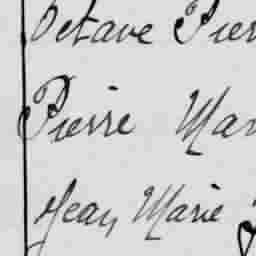 Octave Pier
Pierre Mar
Jean Marie